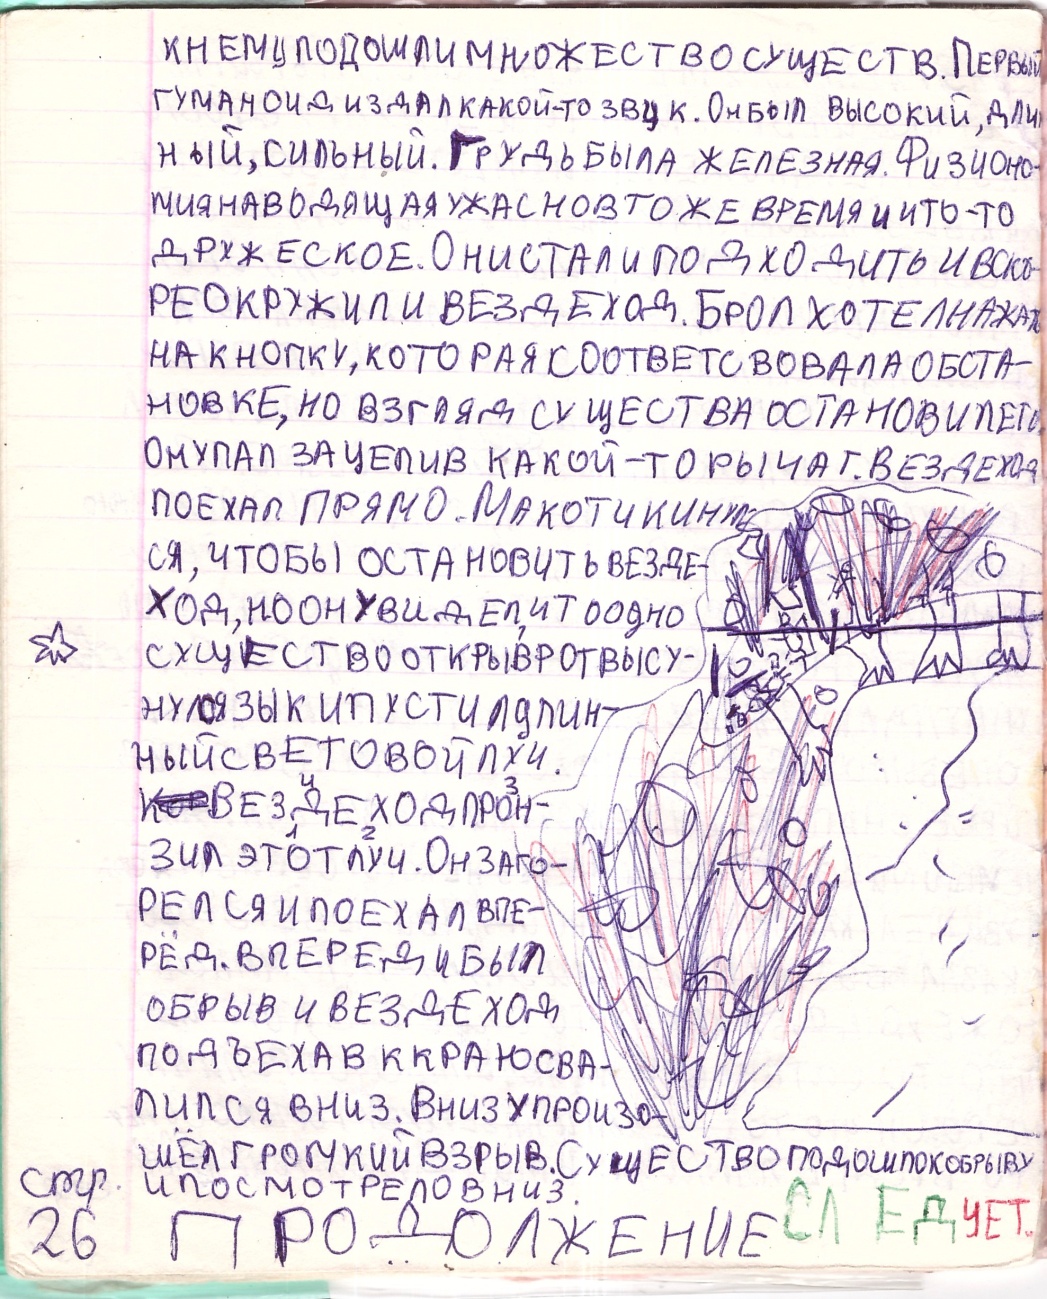 К НЕМУ ПОДОШЛИ МНОЖЕСТВО СУЩЕСТВ. ПЕРВЫЙ
ГУМАНОИД ИЗДАЛ КАКОЙ-ТО ЗВУК. ОН БЫЛ ВЫСОКИЙ, ДЛИ
НЫЙ, СИЛЬНЫЙ. ГРУДЬ БЫЛА ЖЕЛЕЗНАЯ. ФИЗИОНО-
МИЯ НАВОДЯЩАЯ УЖАС НО В ТО ЖЕ ВРЕМЯ И ЧТО-ТО
ДРУЖЕСКОЕ. ОНИ СТАЛИ ПОДХОДИТЬ И ВСКО-
РЕ ОКРУЖИЛИ ВЕЗДЕХОД. БРОЛ ХОТЕЛ НАЖАТЬ
НА КНОПКУ, КОТОРАЯ СООТВЕТСВОВАЛА ОБСТА-
НОВКЕ, НО ВЗГЛЯД СУЩЕСТВА ОСТАНОВИЛ ЕГО.
ОН УПАЛ ЗАЦЕПИВ КАКОЙ-ТО РЫЧАГ. ВЕЗДЕХОД
ПОЕХАЛ ПРЯМО. МАКОТИ КИНУЛ
СЯ, ЧТОБЫ ОСТАНОВИТЬ ВЕЗДЕ-
ХОД, НО ОН УВИДЕЛ, ЧТО ОДНО
СУЩЕСТВО ОТКРЫВ РОТ ВЫСУ-
НУЛО ЯЗЫК И ПУСТИЛ ДЛИН-
НЫЙ СВЕТОВОЙ ЛУЧ.
ВЕЗДЕХОД ПРОН-
4 3
ЗИЛ ЭТОТ ЛУЧ. ОН ЗАГО-
1 2
РЕЛСЯ И ПОЕХАЛ ВПЕ-
РЁД. ВПЕРЕДИ БЫЛ
ОБРЫВ И ВЕЗДЕХОД
ПОДЪЕХАВ К КРАЮ СВА-
ЛИЛСЯ ВНИЗ. ВНИЗУ ПРОИЗО-
ШЁЛ ГРОМКИЙ ВЗРЫВ. СУЩЕСТВО ПОДОШЛО К ОБРЫВУ
И ПОСМОТРЕЛО ВНИЗ.
стр.
26
ПРОДОЛЖЕНИЕ СЛЕДУЕТ.